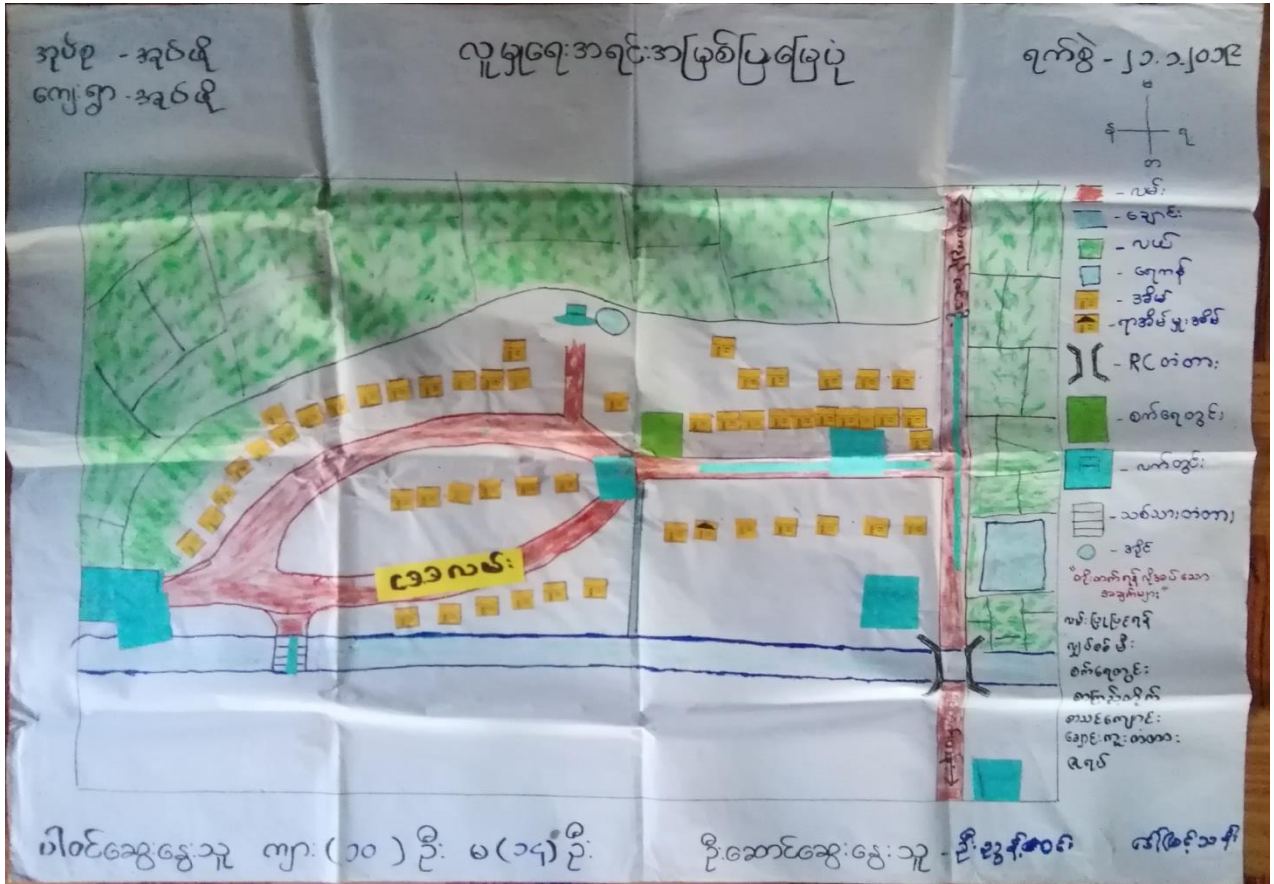 အုပ်စု - အုပ်ဖို
ကျေးရွာ - အုပ်ဖို
လူမှုရေးအရင်းအမြစ်ပြမြေပုံ
ရက်စွဲ - ၂၁.၁.၂၀၁၉
မ
န ရ
တ
- လမ်း
- ချောင်း
- လယ်
- ရေကန်
- အိမ်
- ရာအိမ်မှူးအိမ်
- RC တံတား
- စက်ရေတွင်း
- လက်တွင်း
- သစ်သားတံတား
- အိုင်
"ဝိုးတက်ရန်လိုအပ်သော
အချက်များ"
လမ်းပြုပြင်ရန်
လျှပ်စစ်မီး
စက်ရေတွင်း
စာကြည့်တိုက်
စာသင်ကျောင်း
ချောင်းကူးတံတား
ဇရပ်
ဒေအလမ်း
ပါဝင်ဆွေးနွေးသူ ကျား (၁၀) ဦး မ (၁၄) ဦး
ဦးဆောင်ဆွေးနွေးသူ -